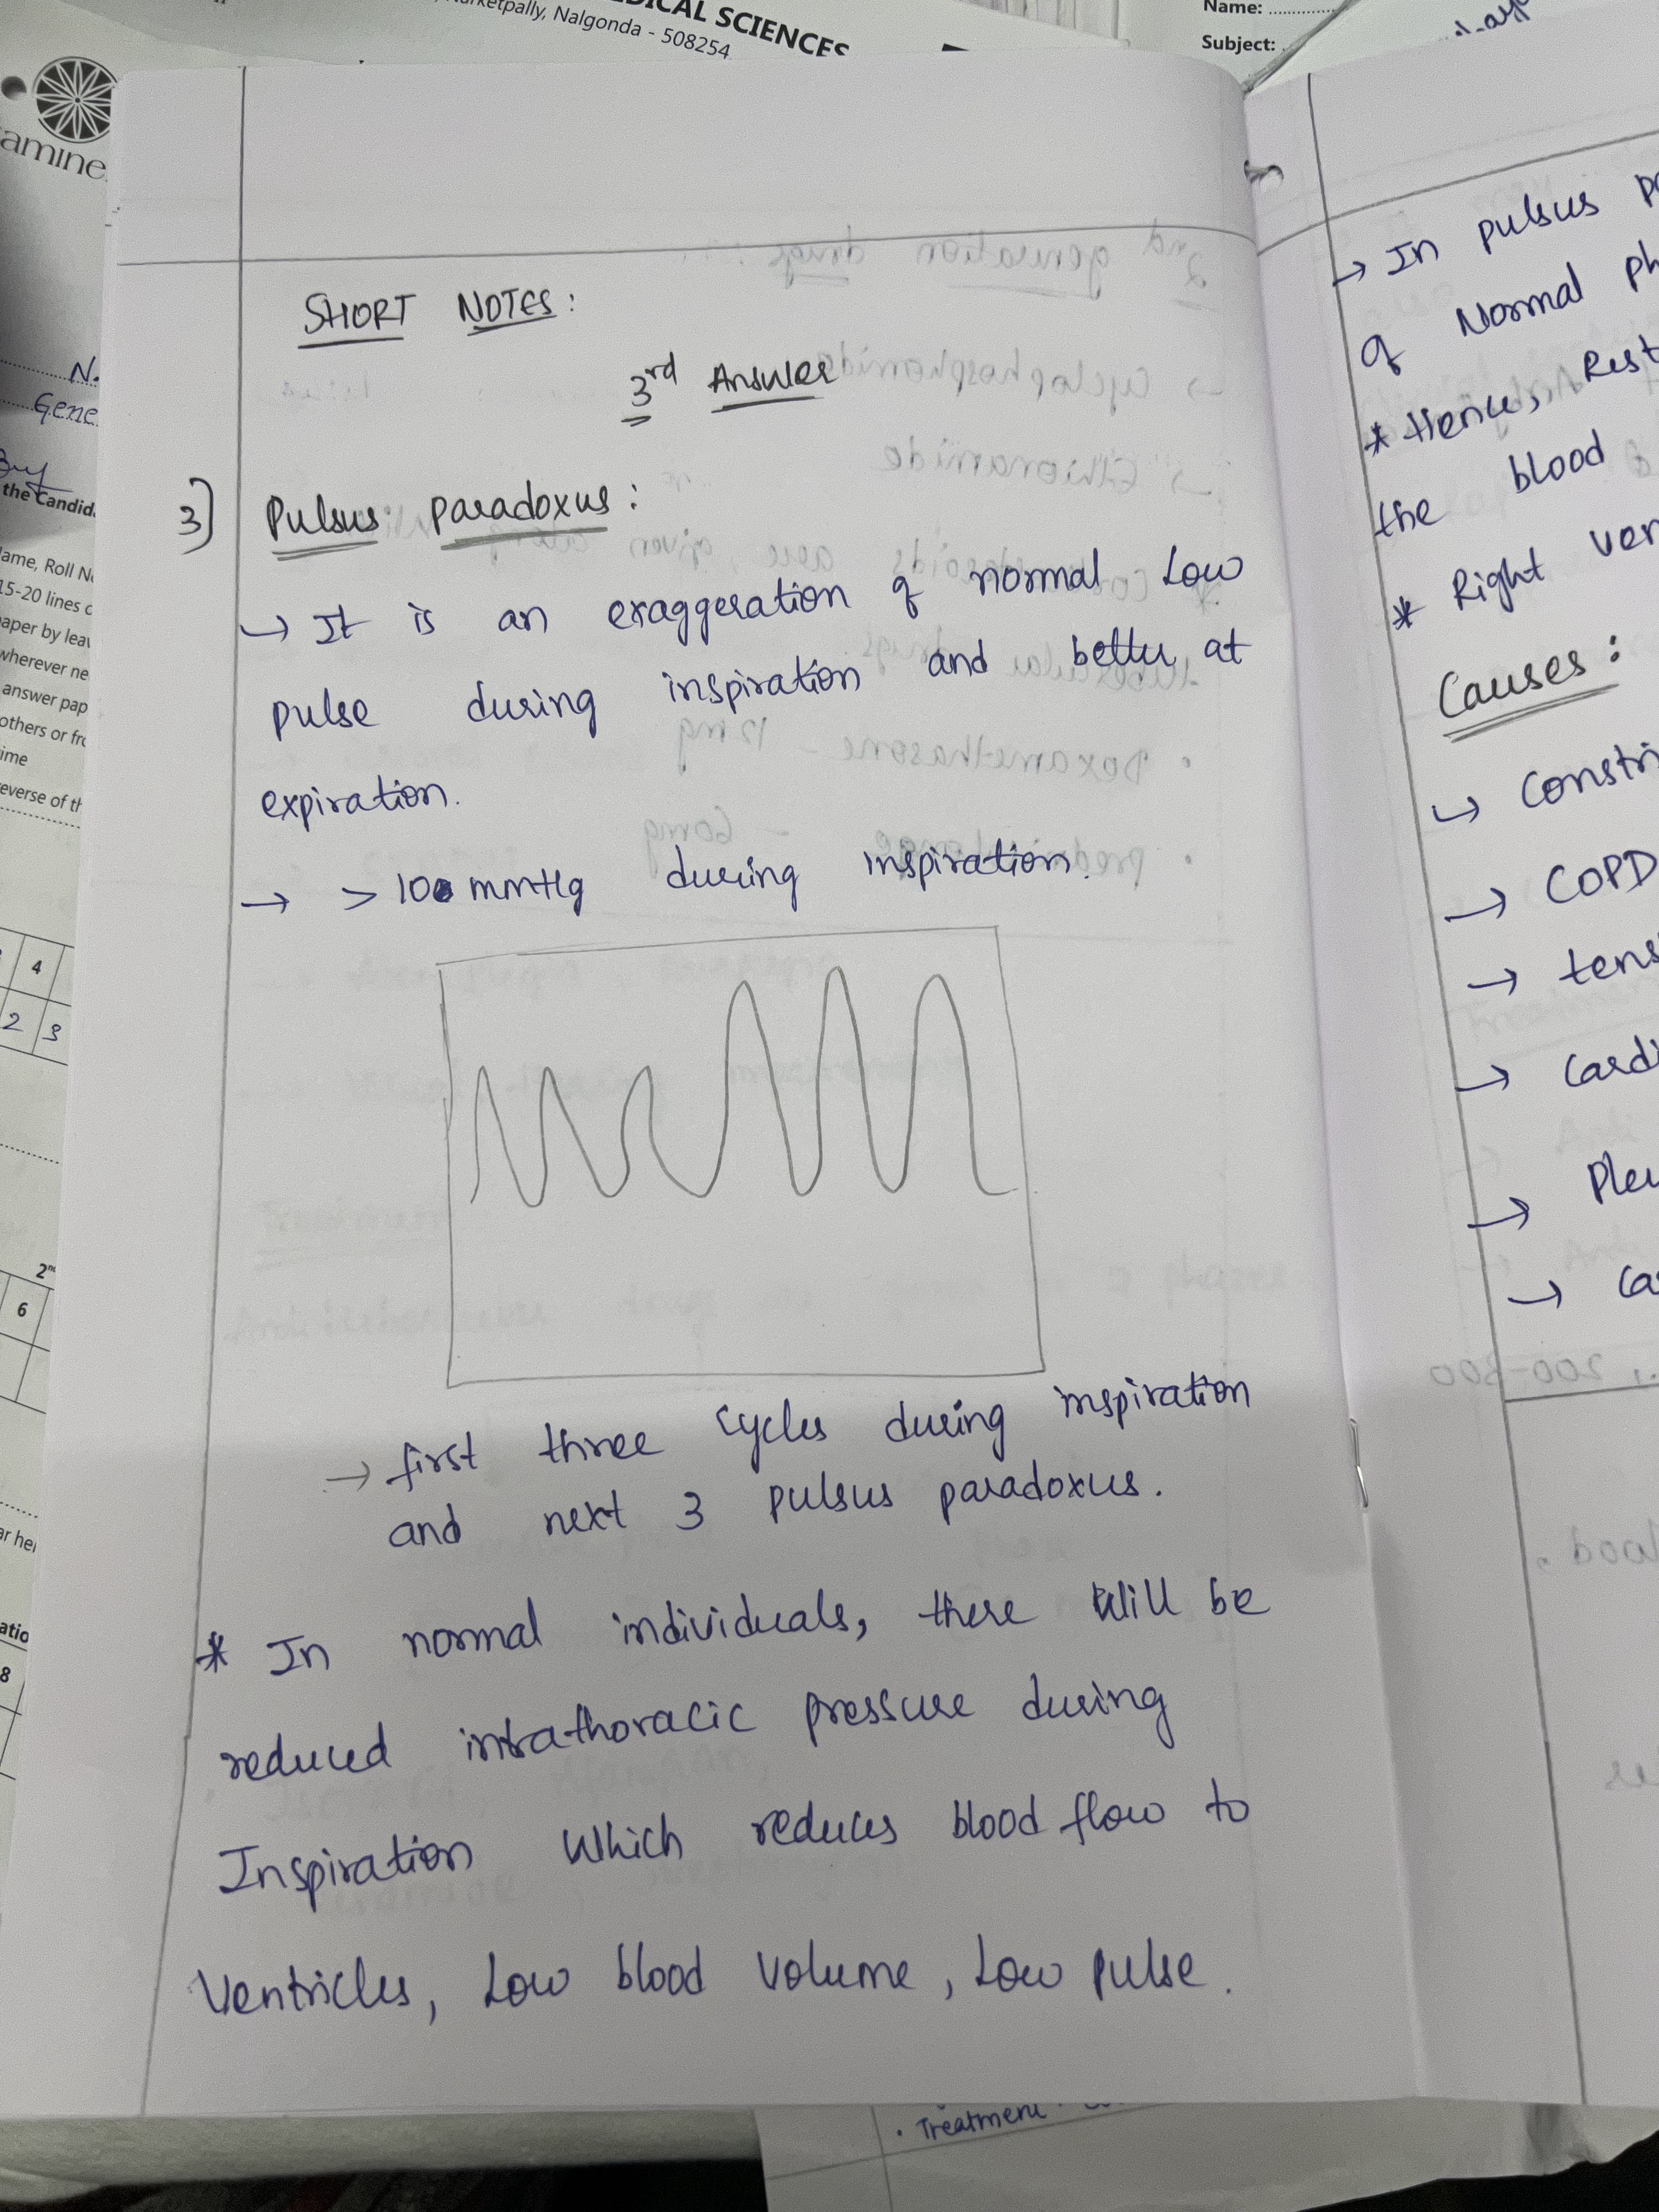 MEDICAL SCIENCES
Narketpally, Nalgonda - 508254
Name:
Subject:
amine
N.
Gene
the Candid
ame, Roll N
15-20 lines
aper by lea
wherever ne
answer pap
others or fr
ime
everse of th
4
2 3
2nd
6
8
SHORT NOTES:
3rd Answer
3) Pulsus paradoxus:
→ It is an exaggeration of normal Low
pulse during inspiration and better at
expiration.
→ > 10 mmHg during inspiration.
→ first three cycles during inspiration
and next 3 pulsus paradoxus.
* In normal individuals, there will be
reduced intrathoracic pressure during
Inspiration Which reduces blood flow to
Ventricles, Low blood volume, Low pulse.
→ In pulsus
of Normal
* Hence, Rest
the blood
* Right ven
Causes:
→ Constri
→ COPD
→ tens
→ Cardi
→ Pleu
→ Ca
• Treatment